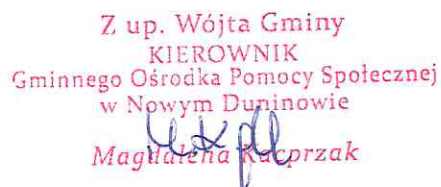 Z up. Wójta Gminy
KIEROWNIK
Gminnego Ośrodka Pomocy Społecznej
w Nowym Duninowie
Magdalena Kacprzak